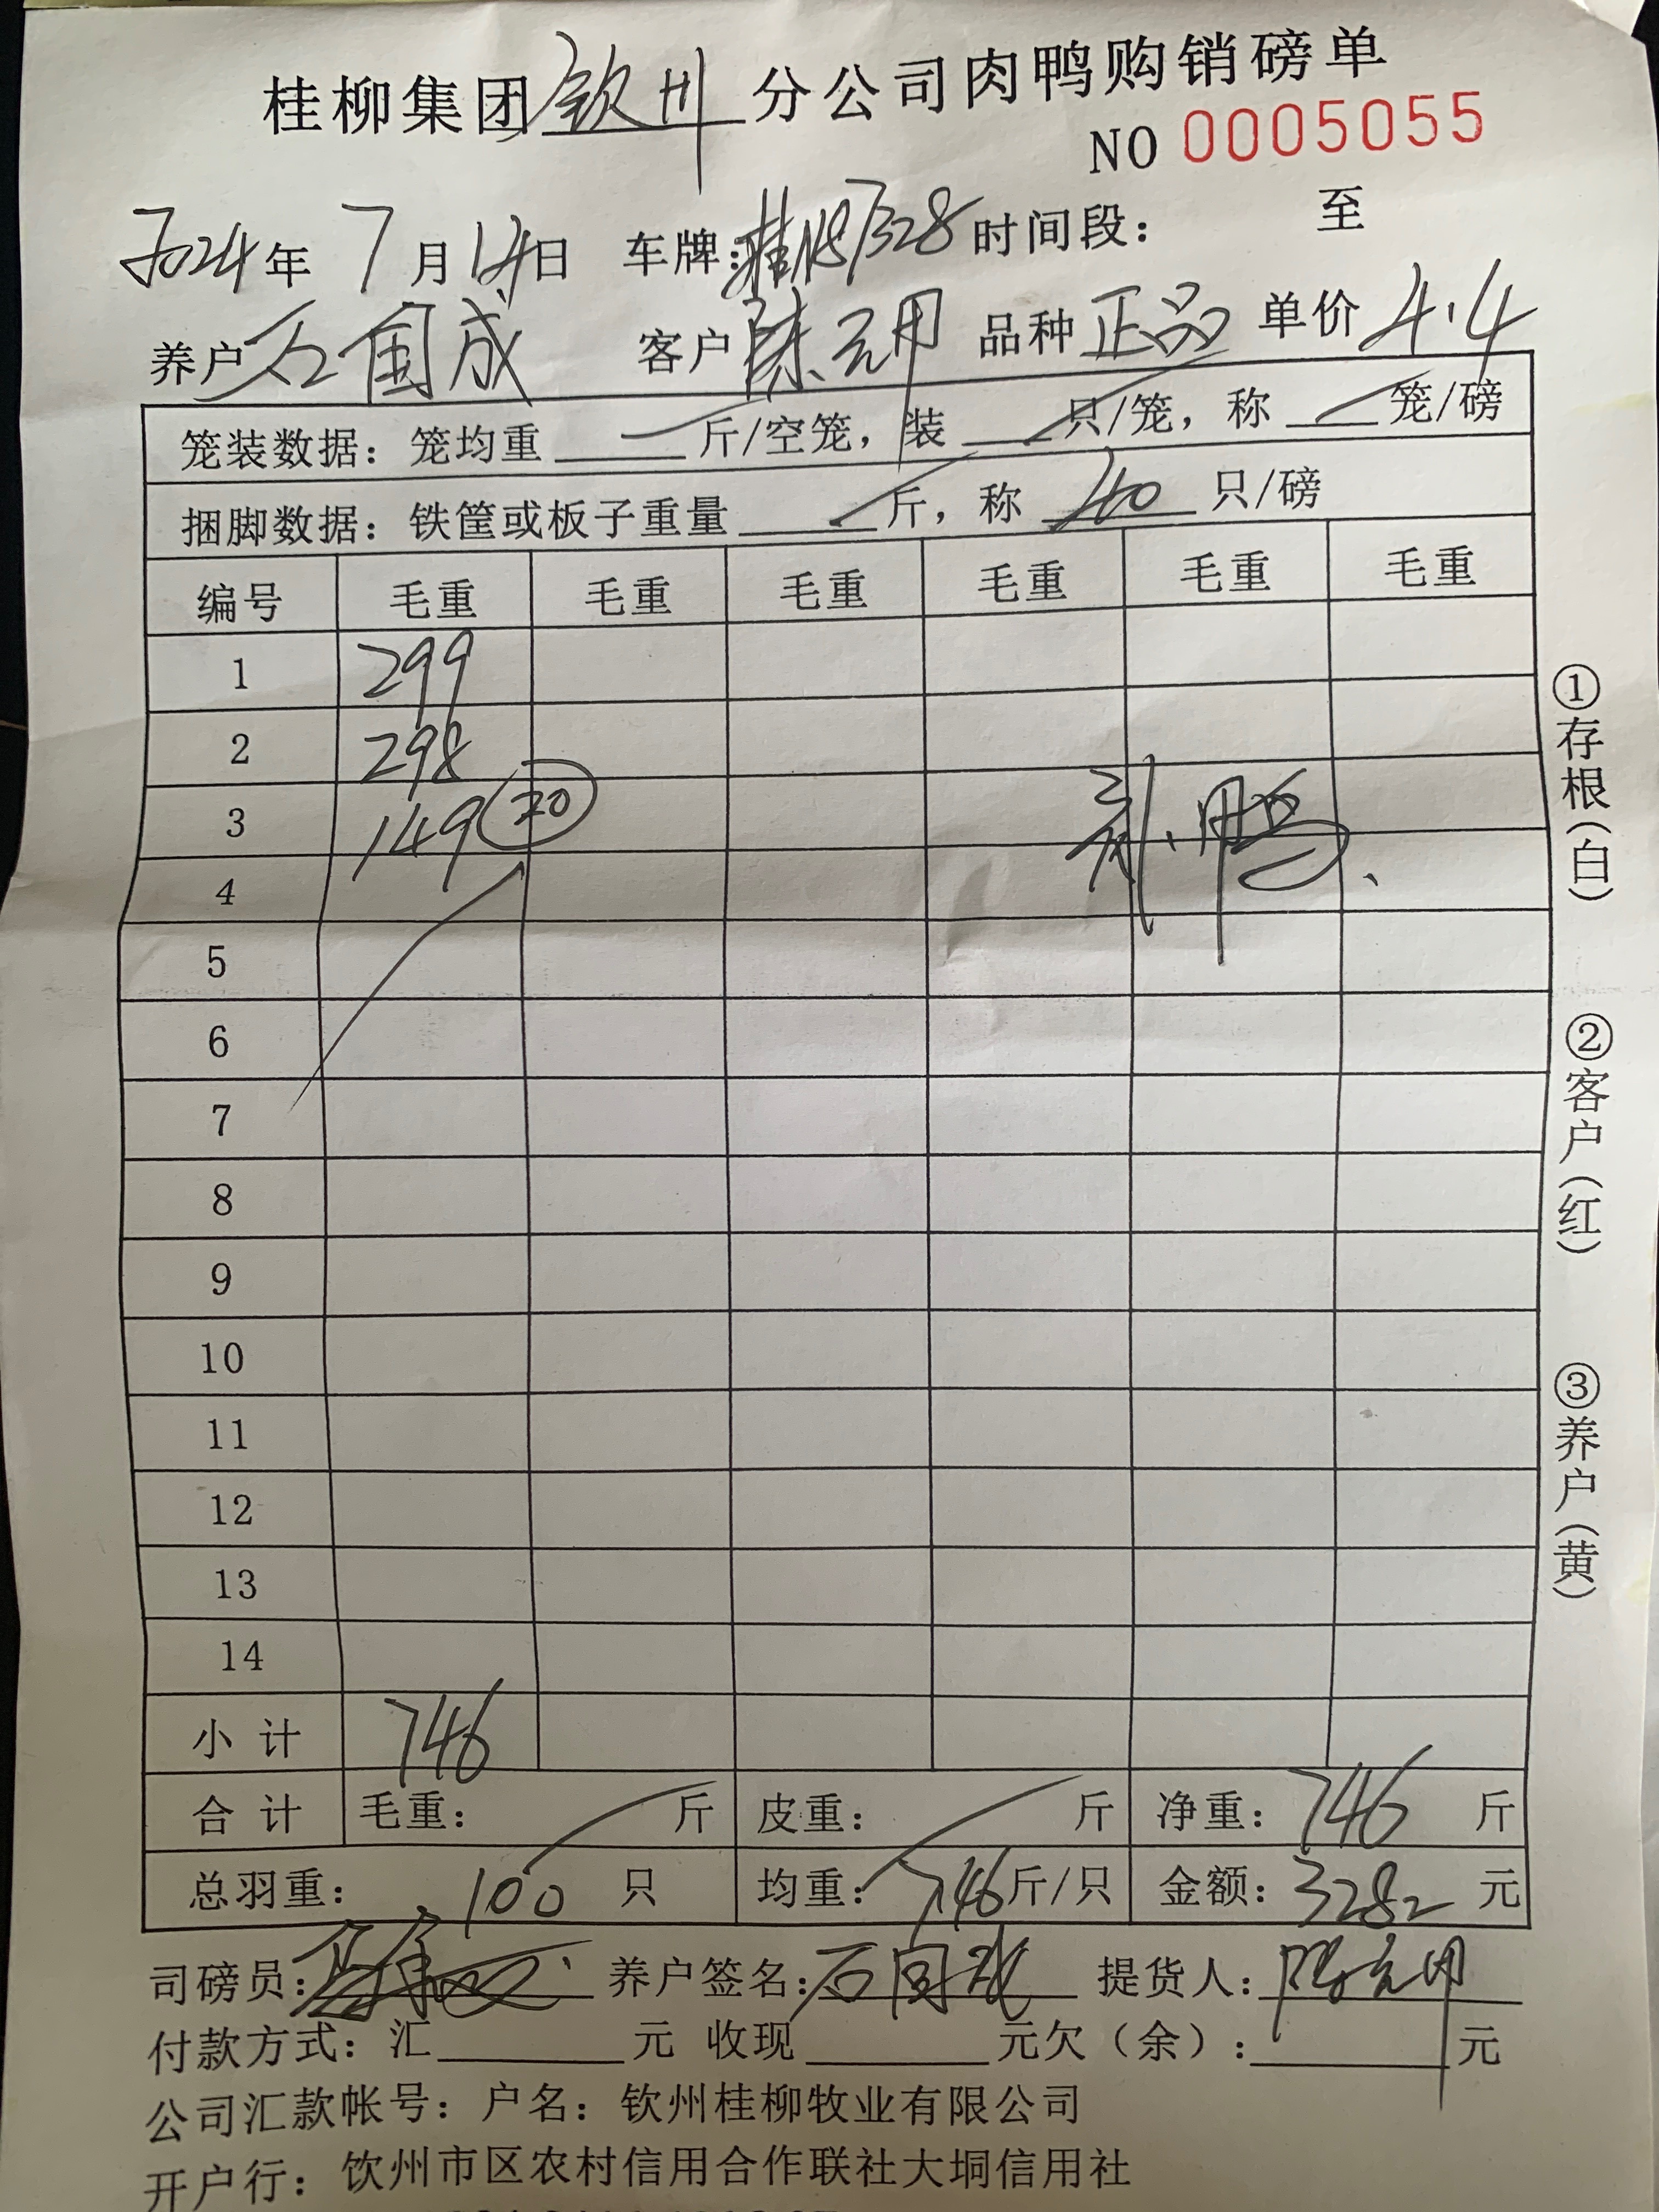 桂柳集团钦州分公司肉鸭购销磅单
NO 0005055
2024年 7月 14日 车牌: 时间段: 至
养户 石国成 客户 陈元明 品种 正品 单价 4.4
笼装数据: 笼均重 斤/空笼, 装 只/笼, 称 笼/磅
捆脚数据: 铁筐或板子重量 斤, 称 40 只/磅
编号 毛重 毛重 毛重 毛重 毛重 毛重
1 299
2 298
3 149 20
4
5
6
7
8
9
10
11
12
13
14
小计 746
合计 毛重: 斤 皮重: 斤 净重: 746 斤
总羽重: 100 只 均重: 7.46 斤/只 金额: 3282 元
司磅员: 养户签名: 石国成 提货人: 陈元明
付款方式: 汇 元 收现 元欠(余): 元
公司汇款帐号: 户名: 钦州桂柳牧业有限公司
开户行: 钦州市区农村信用合作联社大垌信用社
①存根(白)
②客户(红)
③养户(黄)